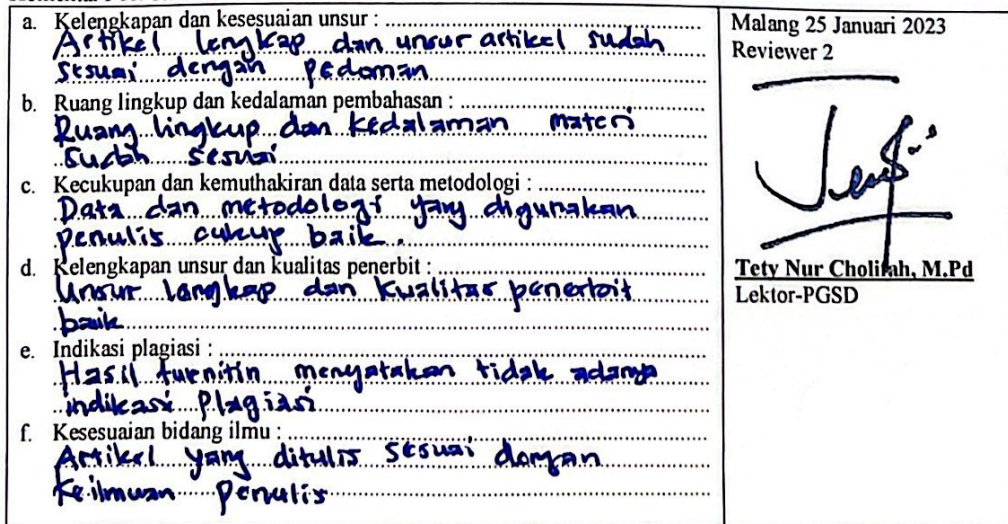 a. Kelengkapan dan kesesuaian unsur :
Artikel lengkap dan unsur artikel sudah
sesuai dengan pedoman
b. Ruang lingkup dan kedalaman pembahasan :
Ruang lingkup dan kedalaman materi
sudah sesuai
c. Kecukupan dan kemuthakiran data serta metodologi :
Data dan metodologi yang digunakan
penulis cukup baik.
d. Kelengkapan unsur dan kualitas penerbit :
Unsur lengkap dan kualitas penerbit
baik
e. Indikasi plagiasi :
Hasil turnitin menyatakan tidak adanya
indikasi plagiasi
f. Kesesuaian bidang ilmu :
Artikel yang ditulis sesuai dengan
keilmuan penulis
Malang 25 Januari 2023
Reviewer 2
Tety Nur Cholifah, M.Pd
Lektor-PGSD